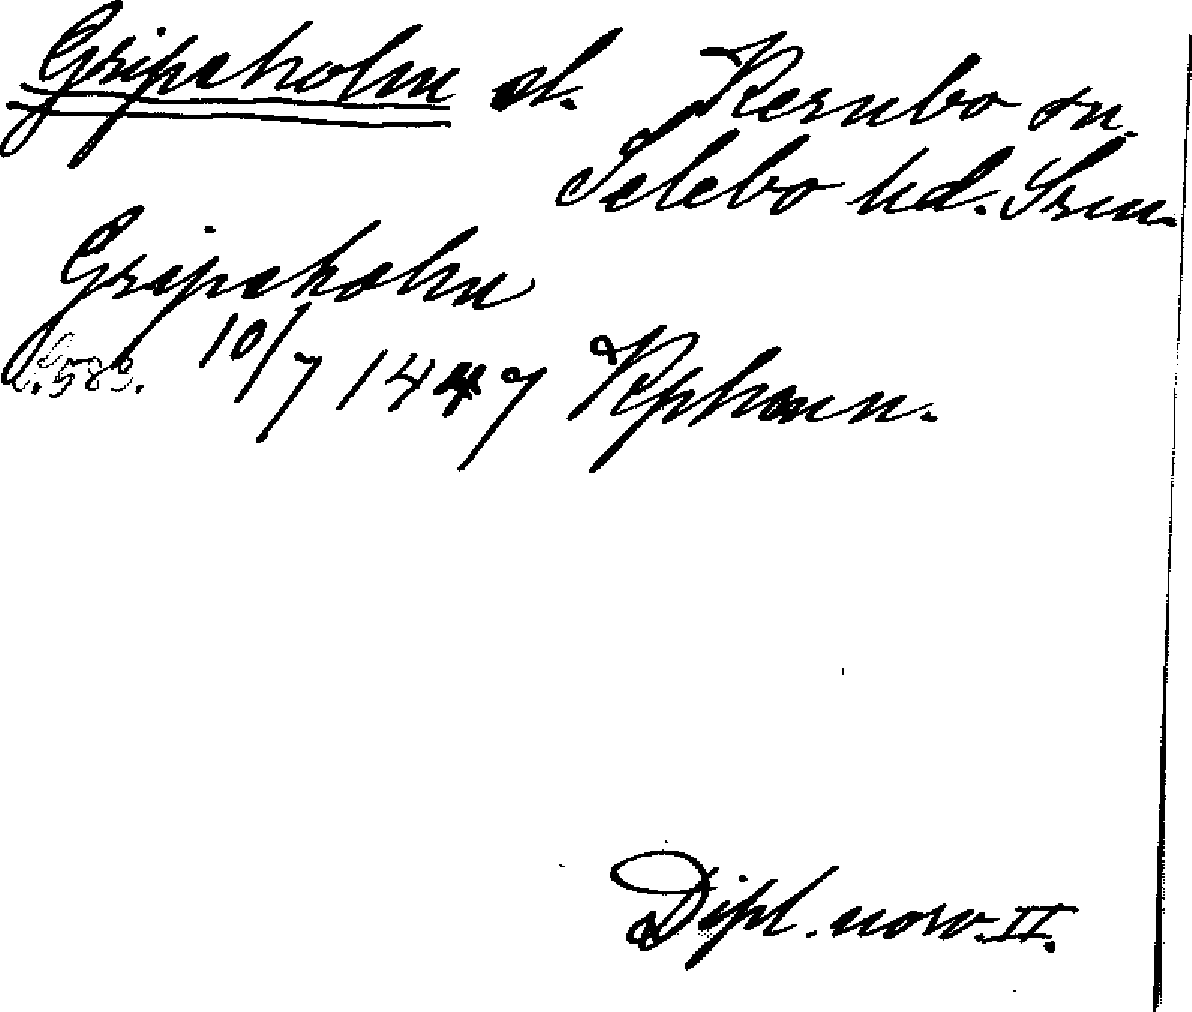 Gripsholm sl. Kernbo sn.
Selebo hd. Srm.
Gripsholm
s. 583. 10/7 1447 Kphamn.
Dipl. norv. II.